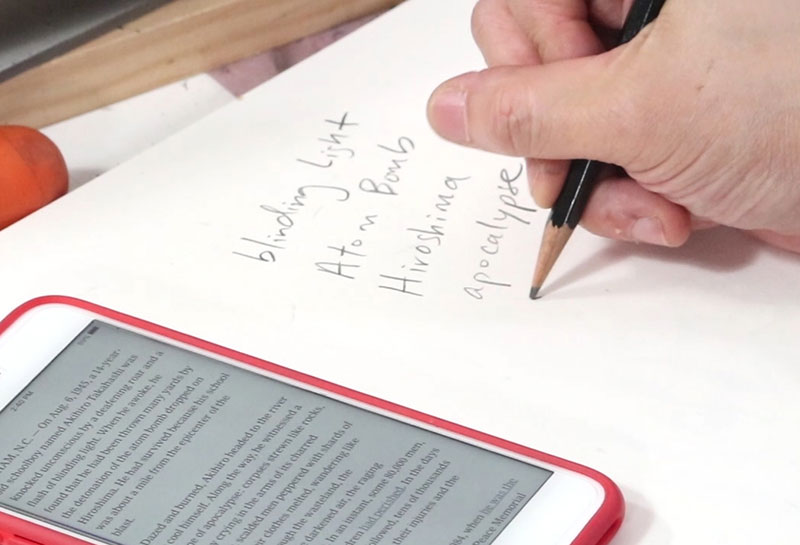 blinding Light
Atom Bomb
Hiroshima
apocalypse
2:40 PM
N.C. — On Aug. 6, 1945, a 14-year-
schoolboy named Akihiro Takahashi was
knocked unconscious by a deafening roar and a
flash of blinding light. When he awoke, he
found that he had been thrown many yards by
the detonation of the atom bomb dropped on
Hiroshima. He had survived because his school
was about a mile from the epicenter of the
blast.
Dazed and burned, Akihiro headed to the river
cool himself. Along the way, he witnessed a
of apocalypse: corpses strewn like rocks,
crying in the arms of its charred
scalded men peppered with shards of
clothes melted, wandering like
the wasteland, the
darkened air the raging
In an instant, some 80,000 men,
had perished. In the days
tens of thousands
their injuries and the
when he was the
Peace Memorial